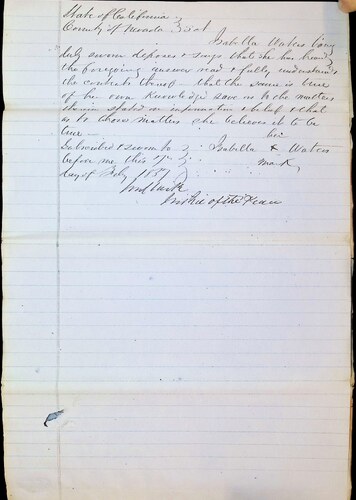 State of California
County of Nevada } ss. Isabella Waters being
duly sworn deposes & says that she has heard
the foregoing answer read & fully understands
the contents thereof that the same is true
of her own knowledge save as to the matters
therein stated on information & belief & that
as to those matters she believes it to be
true — her
Subscribed & sworn to } Isabella X Waters
before me this } mark
day of July
Justice of the Peace